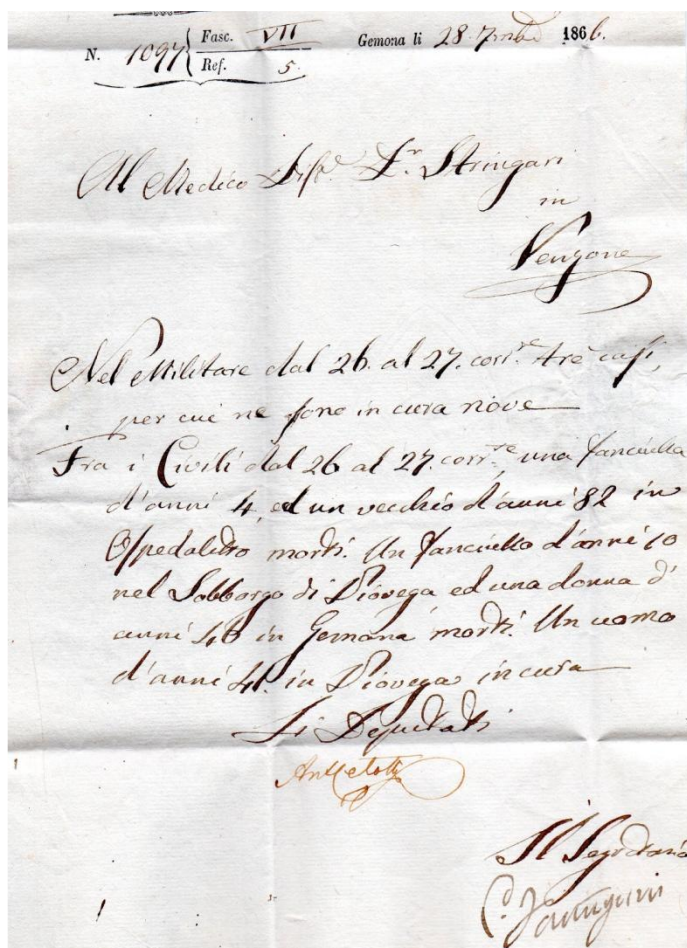 N. 1097 Fasc. VII Gemona li 28. 7mbre 1866.
Ref. 5.
Al Medico Disl.e D.r Stringari
in
Venzone
Nel Militare dal 26. al 27. corr.te trè casi,
per cui ne sono in cura nove
Fra i Civili dal 26 al 27. corr.te, una fanciulla
d'anni 4, ed un vecchio d'anni 82 in
Ospedaletto morti. Un fanciullo d'anni 10
nel Sobborgo di Piovega ed una donna d'
anni 46 in Gemona morti. Un uomo
d'anni 41. in Piovega in cura
Li Deputati
Il Segretario